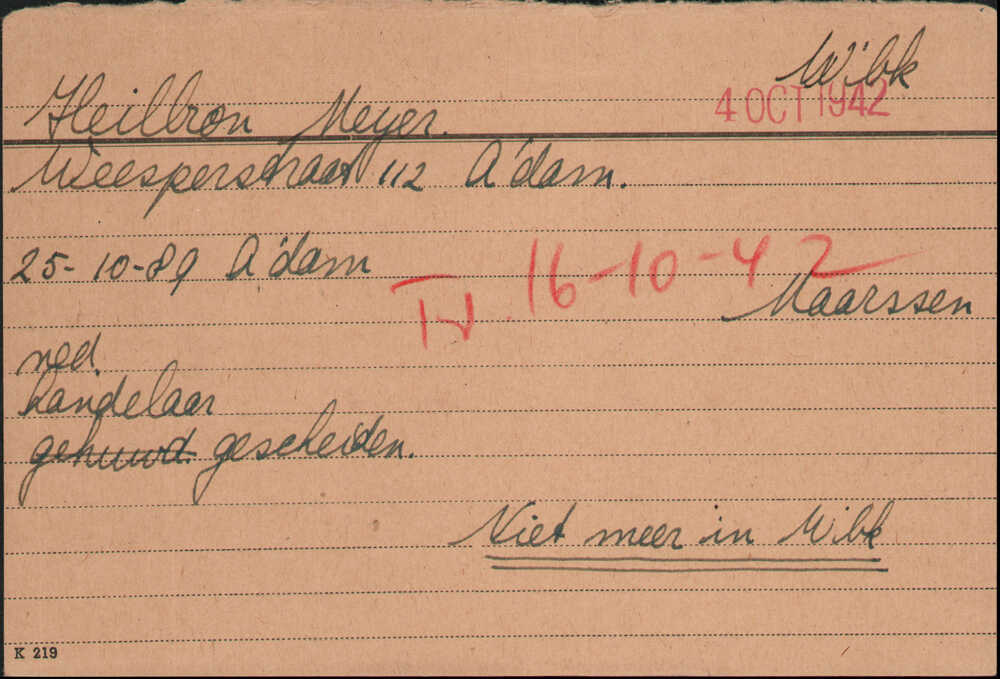 Wibk
4 OCT 1942
Heilbron Meyer.
Weesperstraat 112 A'dam.
25-10-89 A'dam
16-10-42
Maarssen
ned.
handelaar
gehuwd. gescheiden.
Niet meer in Wibk
K 219